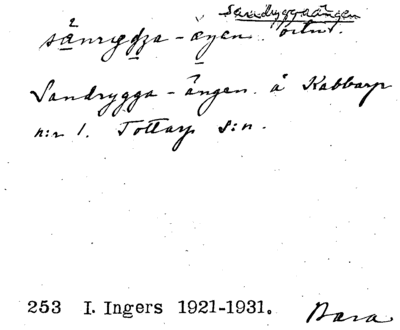 Sandryggaängen
sånrygga-äŋen ortn.
Sandrygga-ängen å Kabbarp
n:r 1. Tottarp s:n.
253 I. Ingers 1921-1931. Bara